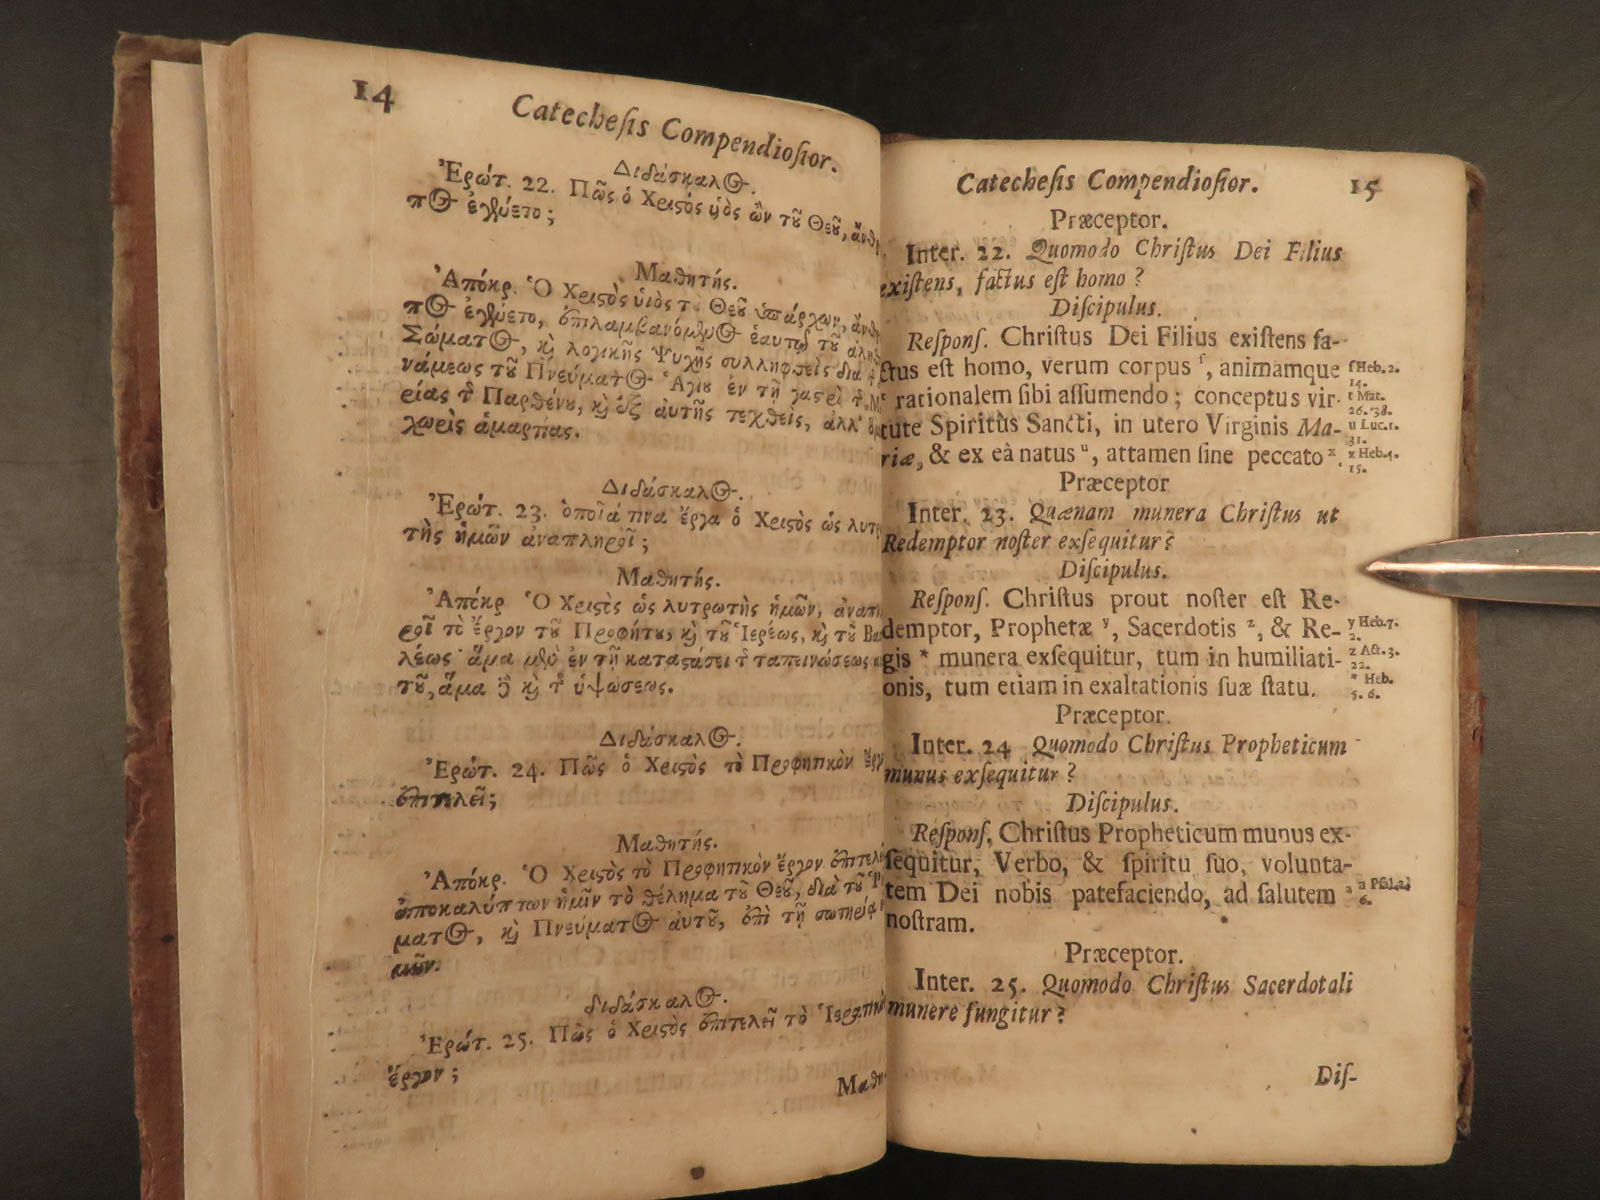 14
Catecheſis Compendioſior.
Διδάσκαλος.
Ἐρώτ. 22. Πῶς ὁ Χριστός υἱὸς ὢν τοῦ Θεοῦ, ἄνθρ
πος ἐγένετο;
Μαθητής.
Ἀπόκρ. Ὁ Χριστὸς υἱὸς τ. Θεοῦ ὑπάρχων, ἄνθρ
πος ἐγένετο, ἐπιλαμβανόμενος ἑαυτῷ τοῦ ἀλη
Σώματος, καὶ λογικῆς Ψυχῆς συλληφθεὶς διὰ
νάμεως τοῦ Πνεύματος Ἁγίου ἐν τῇ γαστρὶ τῆς Μ
είας τῆς Παρθένου, καὶ ἐξ αὐτῆς τεχθεὶς, ἀλλ'
χωρὶς ἁμαρτίας.
Διδάσκαλος.
Ἐρώτ. 23. ὁποῖά τινα ἔργα ὁ Χριστὸς ὡς λυτρ
τὴς ἡμῶν ἀναπληροῖ;
Μαθητής.
Ἀπόκρ Ὁ Χριστὸς ὡς λυτρωτὴς ἡμῶν, ἀναπλ
ροῖ τὸ ἔργον τοῦ Προφήτου, καὶ τοῦ Ἱερέως, καὶ τοῦ Βασ
λέως· ἅμα μὲν ἐν τῇ καταστάσει τῆς ταπεινώσεως
τοῦ, ἅμα δὲ καὶ τῆς ὑψώσεως.
Διδάσκαλος.
Ἐρώτ. 24. Πῶς ὁ Χριστὸς τὸ Προφητικὸν ἔργον
ἐπιτελεῖ;
Μαθητής.
Ἀπόκρ. Ὁ Χριστὸς τὸ Προφητικὸν ἔργον ἐπιτελεῖ
ἀποκαλύπτων ἡμῖν τὸ θέλημα τοῦ Θεοῦ, διὰ τοῦ Ῥ
ματος, καὶ Πνεύματος αὐτοῦ, ἐπὶ τῇ σωτηρίᾳ
μῶν.
διδάσκαλος.
Ἐρώτ. 25. Πῶς ὁ Χριστὸς ἐπιτελεῖ τὸ Ἱερατικὸν
ἔργον;
Μαθη
Catecheſis Compendioſior. 15
Præceptor.
Inter. 22. Quomodo Chriſtus Dei Filius
exiſtens, factus eſt homo?
Diſcipulus.
Reſponſ. Chriſtus Dei Filius exiſtens fa-
ctus eſt homo, verum corpus ſ, animamque
t rationalem ſibi aſſumendo; conceptus vir-
tute Spiritûs Sancti, in utero Virginis Ma-
riæ, & ex eâ natus u, attamen ſine peccato x.
ſ Heb. 2.
14.
t Mat.
26. 38.
u Luc. 1.
31.
x Heb. 4.
15.
Præceptor
Inter. 23. Quænam munera Chriſtus ut
Redemptor noſter exſequitur?
Diſcipulus.
Reſponſ. Chriſtus prout noſter eſt Re-
demptor, Prophetæ y, Sacerdotis z, & Re-
gis * munera exſequitur, tum in humiliati-
onis, tum etiam in exaltationis ſuæ ſtatu.
y Heb. 7.
2.
z Act. 3.
22.
* Heb.
5. 6.
Præceptor.
Inter. 24 Quomodo Chriſtus Propheticum
munus exſequitur?
Diſcipulus.
Reſponſ. Chriſtus Propheticum munus ex-
ſequitur, Verbo, & ſpiritu ſuo, volunta-
tem Dei nobis patefaciendo, ad ſalutem a
noſtram.
a Pſal. 2.
6.
Præceptor.
Inter. 25. Quomodo Chriſtus Sacerdotali
munere fungitur?
Diſ-